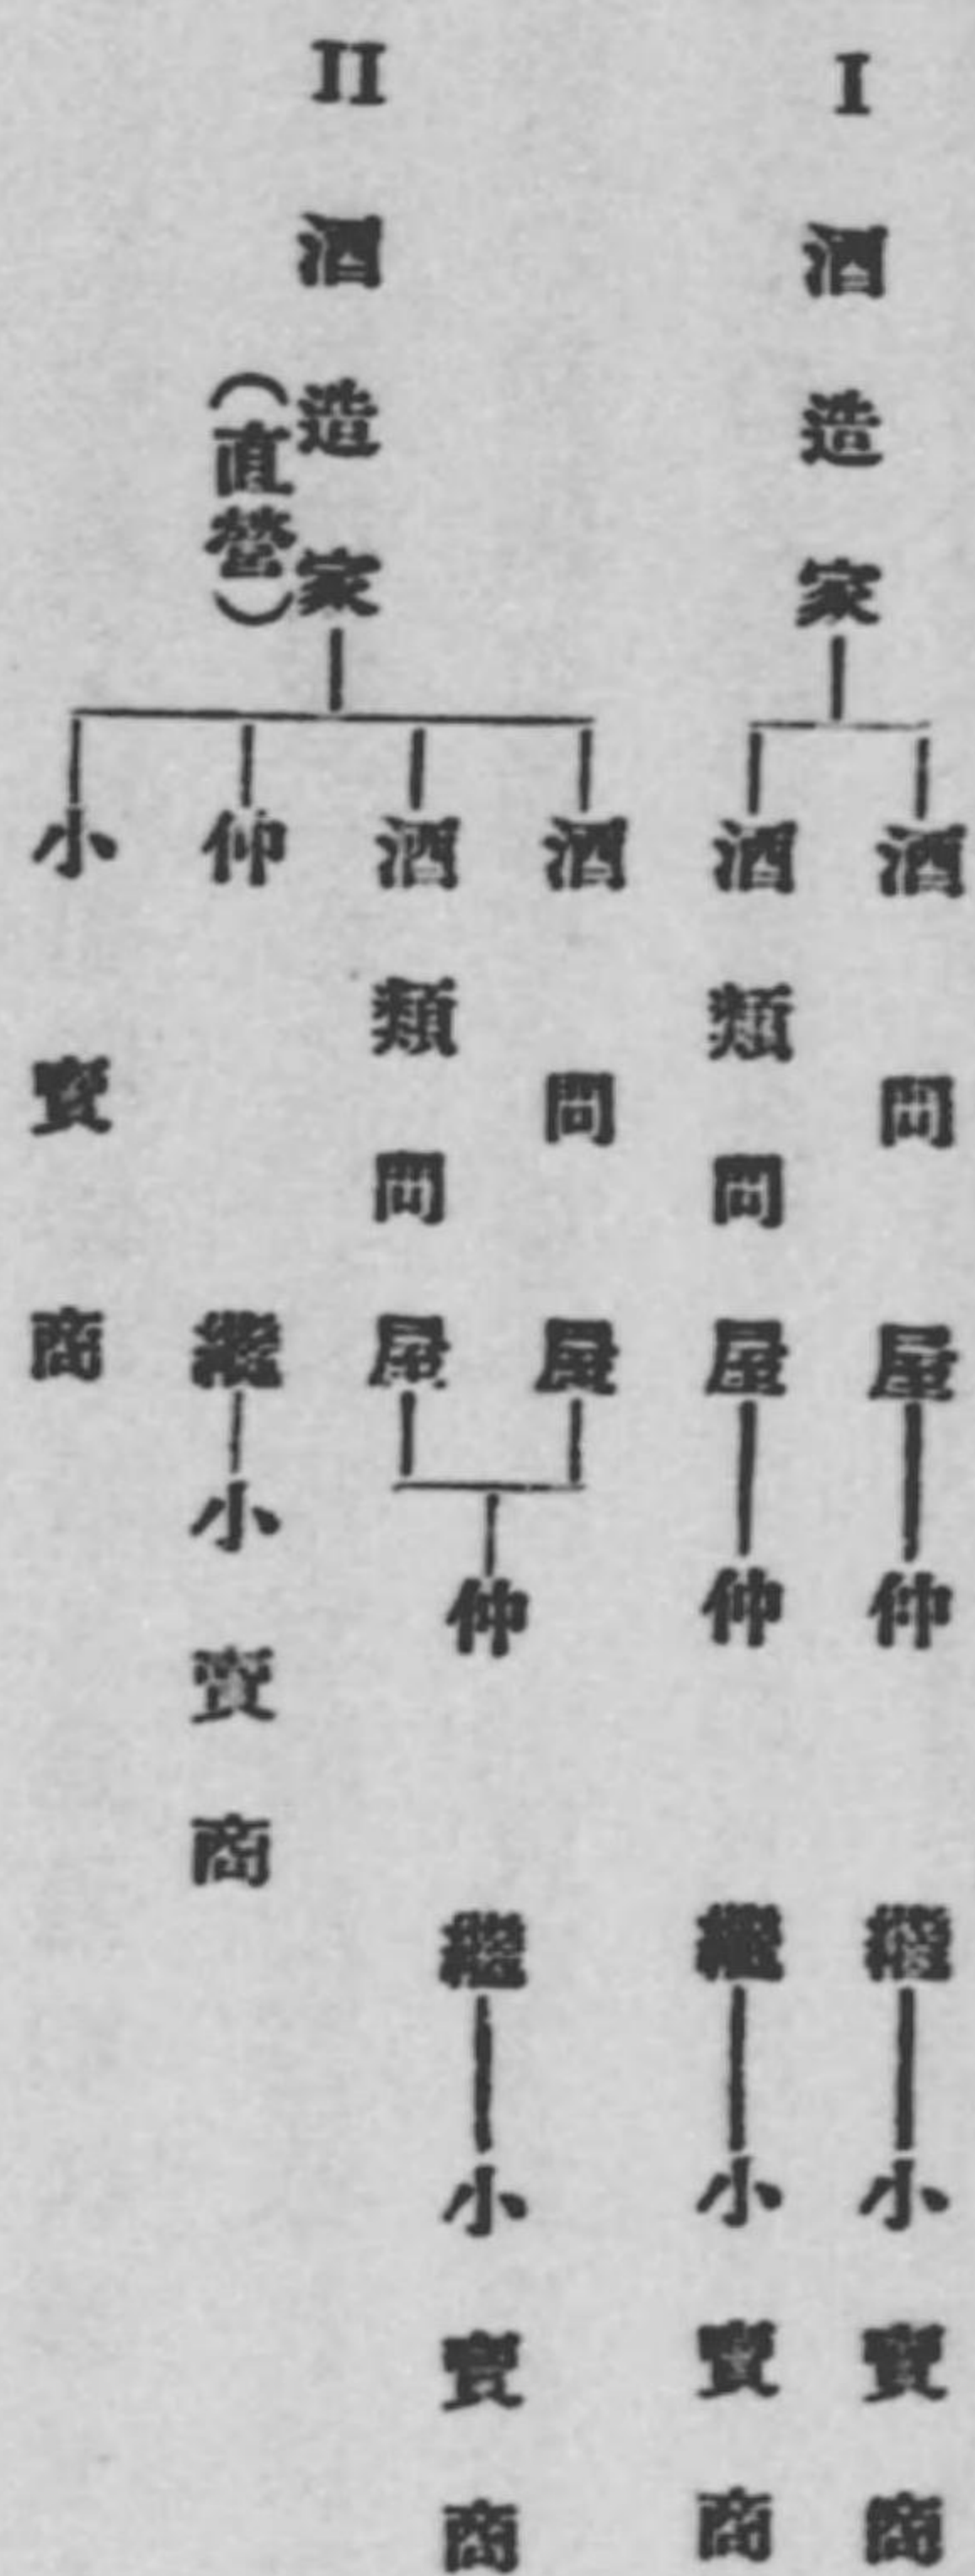 I 酒造家
酒問屋
仲繼
小賣商
酒類問屋
仲繼
小賣商
II 酒造家
(直營)
酒問屋
酒類問屋
仲繼
小賣商
仲繼
小賣商
小賣商